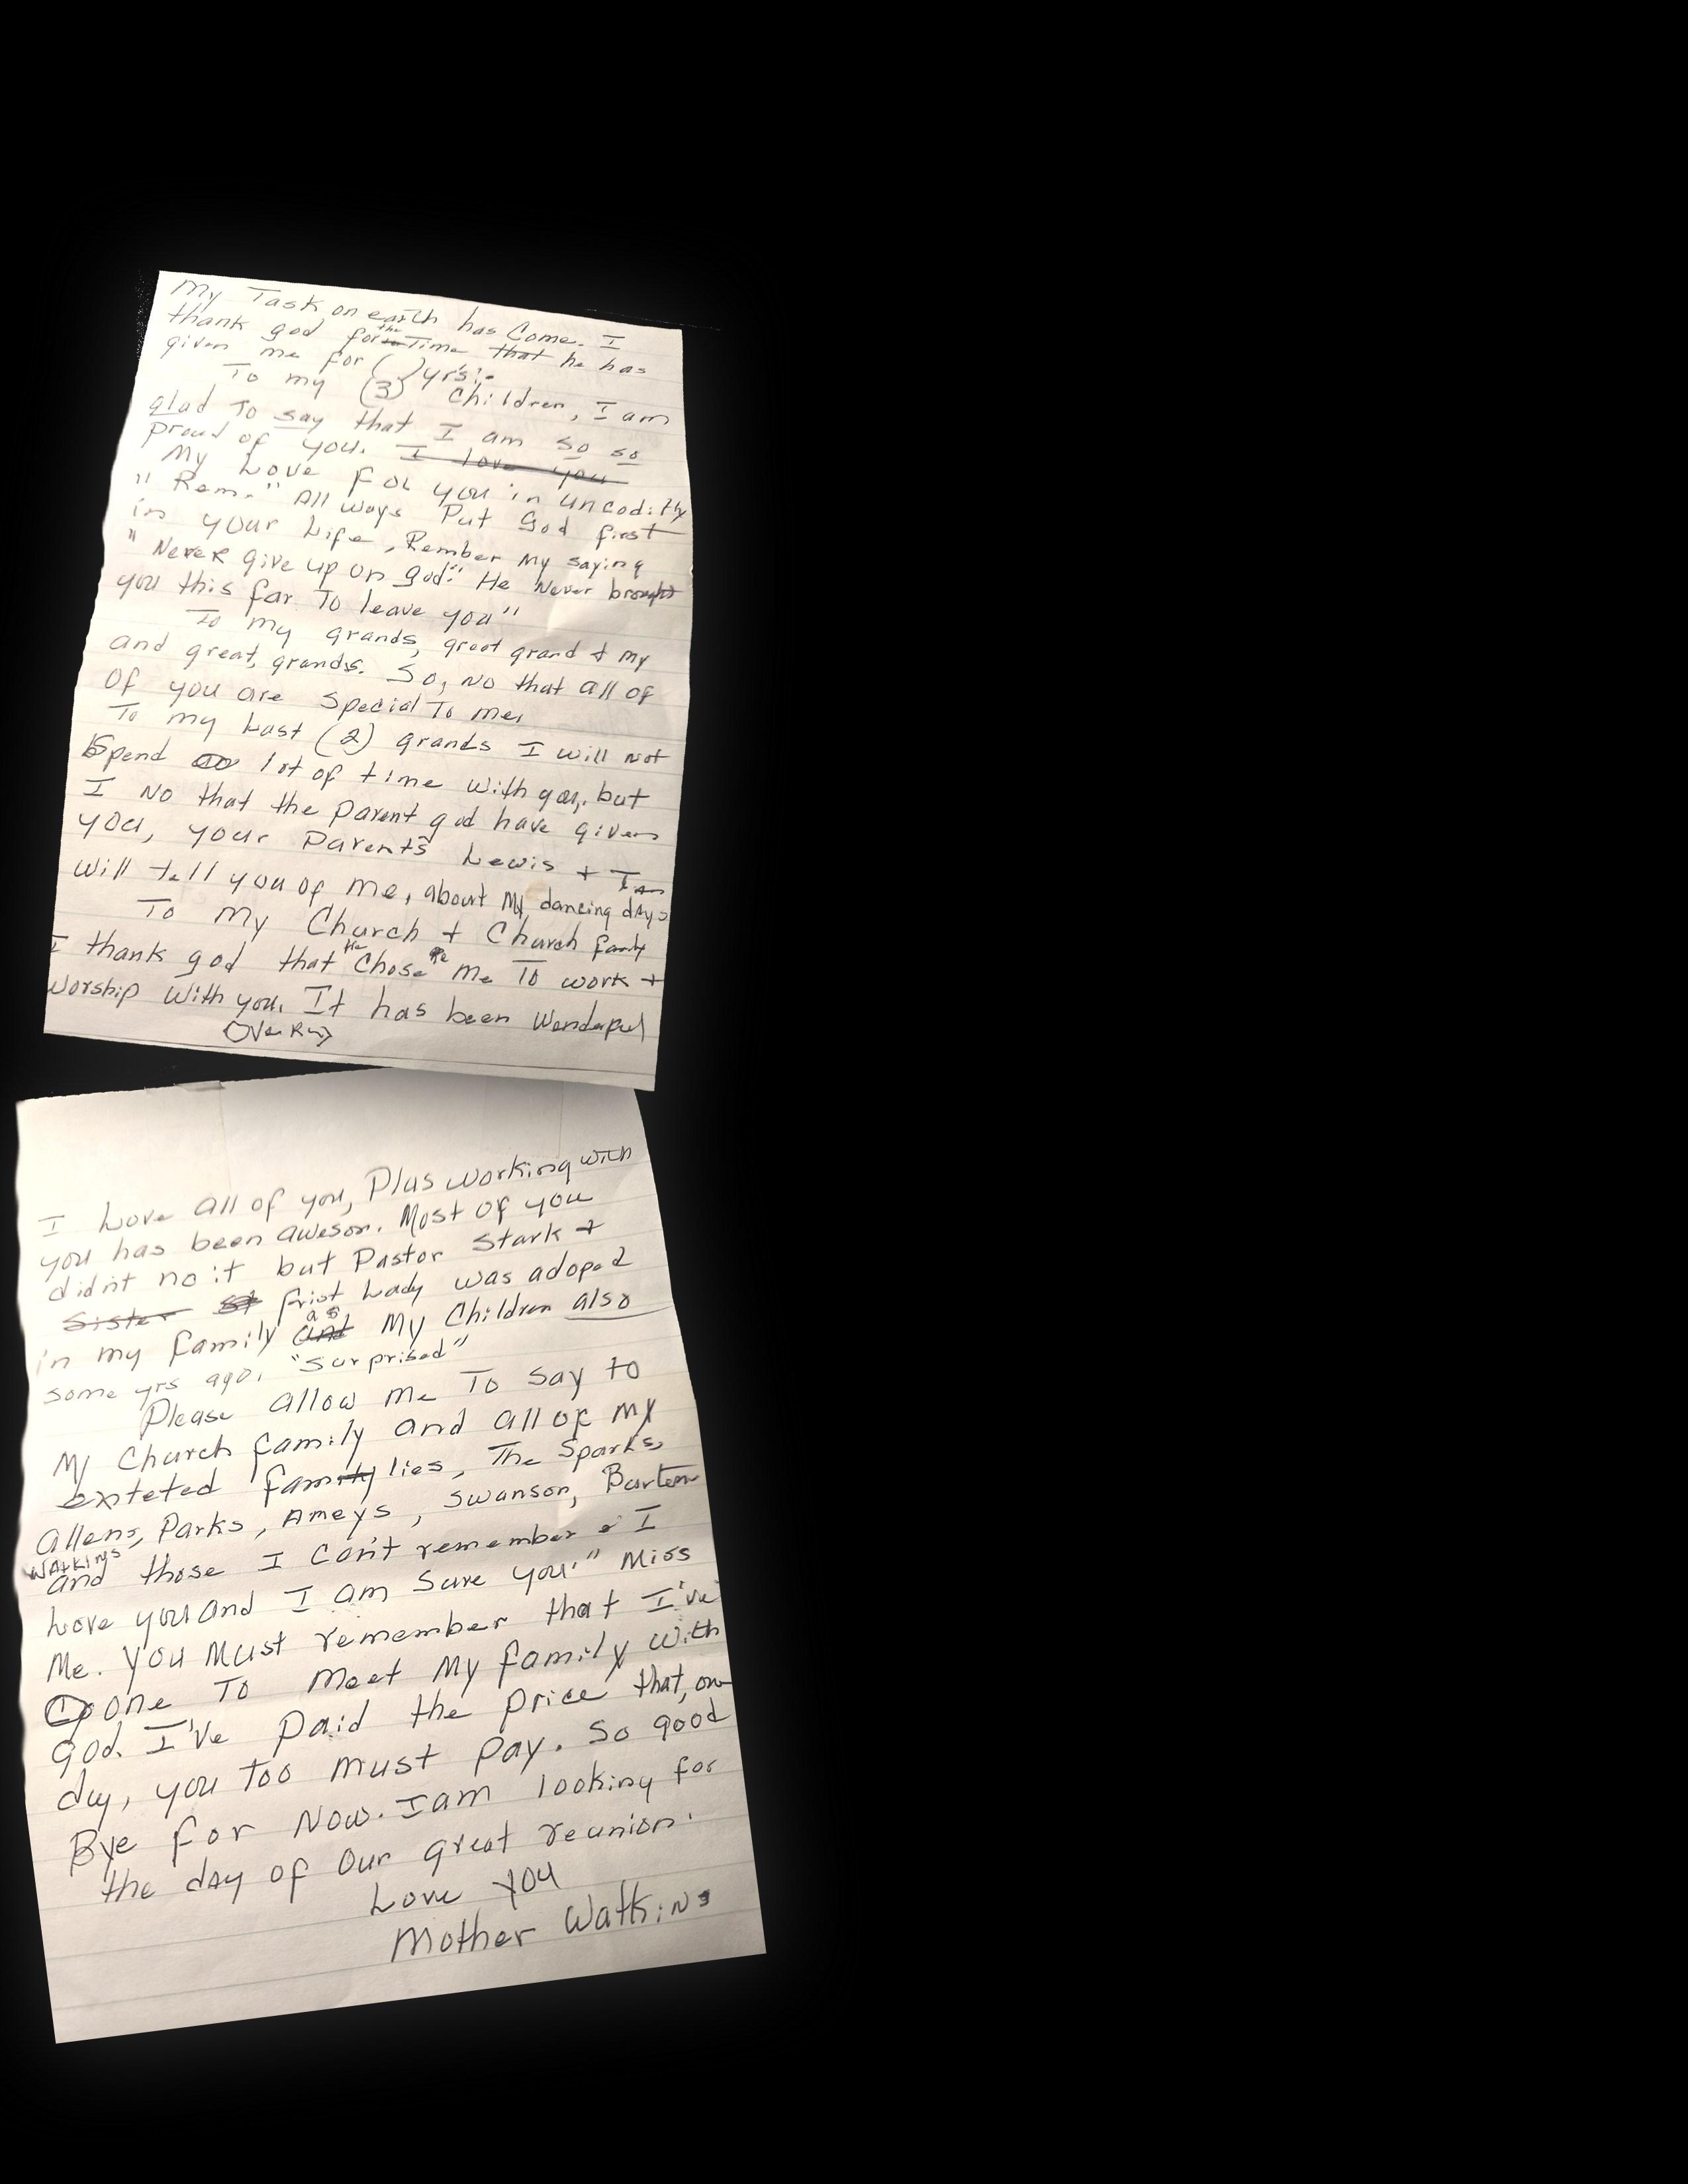 My Task on earth has Come. I
thank god for the Time that he has
given me for ( ) yrs:-
To my (3) Children, I am
glad To say that I am so so
proud of you. I love you
My Love For you in uncoditly
"Rem." All ways Put God first
in your Life, Rember My saying
"Never give up on god." He Never brought
you this far To leave you"
To my grands, great grand & my
and great, grands. So, No that all of
Of you are special To me,
To my Last (2) grands I will not
Spend lot of time with you, but
I No that the parent god have given
you, your Parents Lewis +
will tell you of me, about My dancing days
To My Church + Church family
I thank god that He Chose me To work +
Worship With you. It has been Wonderful
Over
I Love all of you, Plus working with
you has been awesom. Most of you
didn't no it but Pastor Stark +
Sister frist Lady was adoped
in my family as My Children also
some yrs ago. "Surprised"
Please allow Me To say to
My Church family and all of My
exteted families, The Sparks,
allens, Parks, Ameys, Swanson,
Watkins
and those I can't remember I
Love you and I am Sure you" Miss
Me. You Must remember that I've
gone To Meet My family with
god. I've paid the price that, one
day, you Too Must Pay. So good
Bye for Now. I am looking for
the day of Our great reunion.
Love You
Mother Watkins